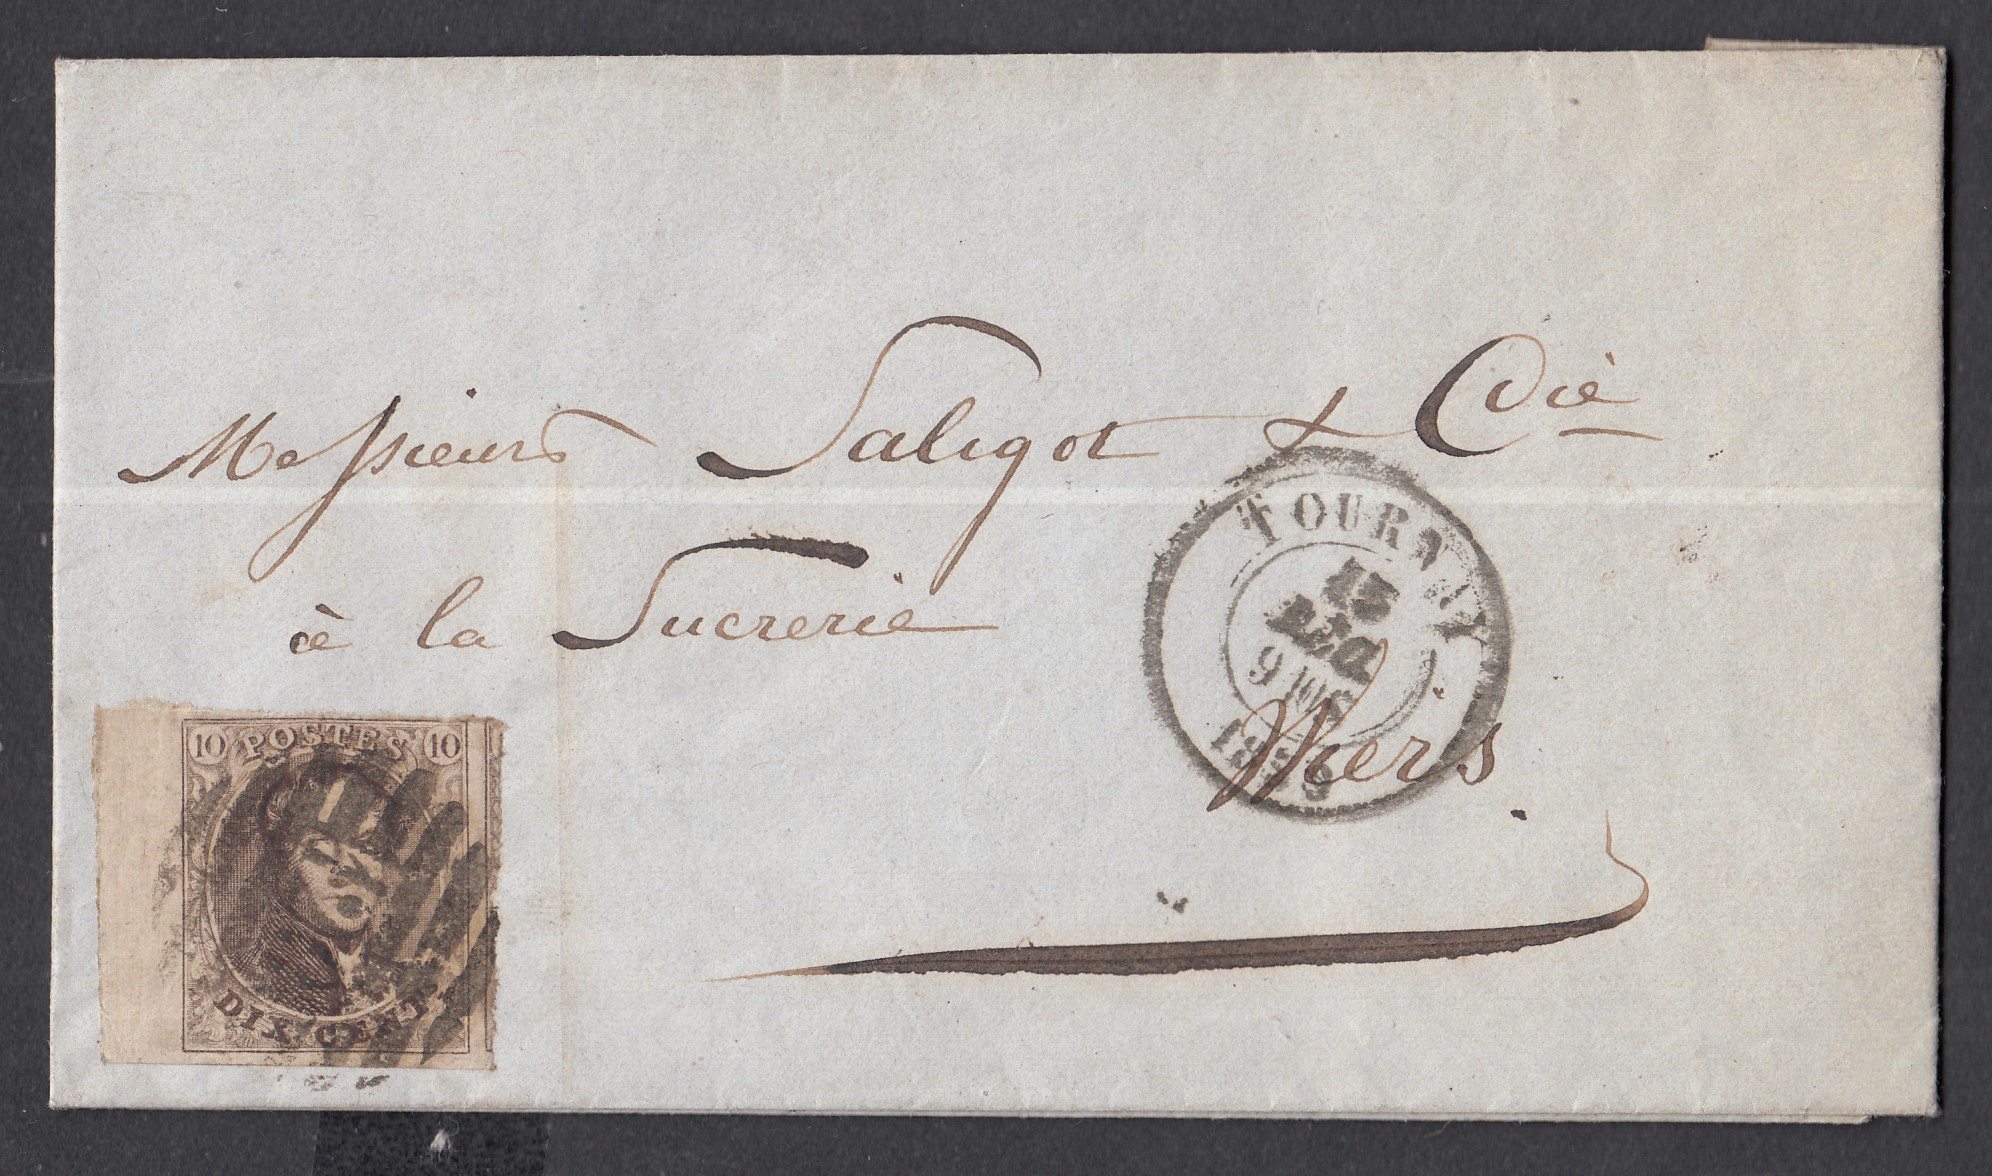 Messieurs Saligot & Cie
à la Sucrerie
Thieis
TOURNAY
15
DEC
9
18
10 POSTES 10
DIX CENTS